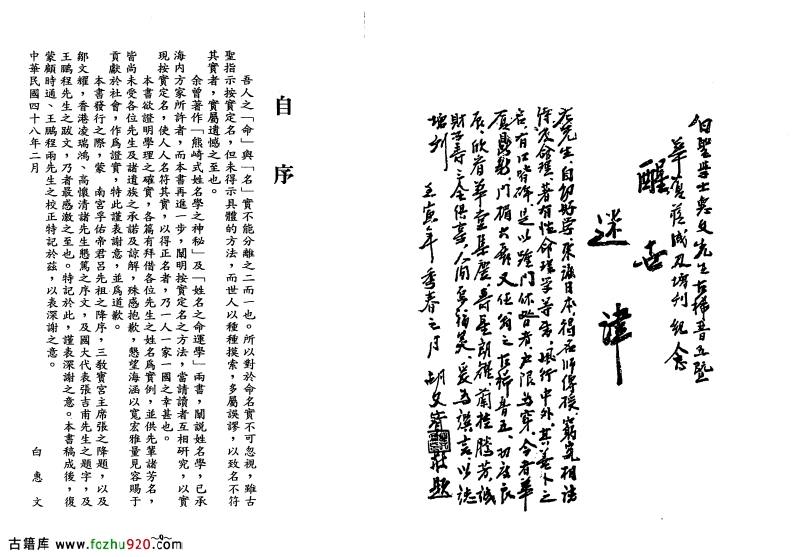 白聖學士惠文先生古稀晉五暨
華廈落成及增刊紀念
醒世
迷津
先生自幼好學東旅日本得名師傳授窮究相法
術及命理著有性命理學等書風行中外其
名有口皆碑是以踵門休咎者戶限為穿今者華
門楣大 又任翁之古稀晉五功
辰欣看華堂集慶壽星朗耀蘭桂騰芳誠
財子壽三全俱幕人間 爰為撰言以誌
增刊 壬寅年季春之月 胡文 敬題
自序
吾人之「命」與「名」實不能分離之二而一也。所以對於命名實不可忽視，雖古
聖指示按實定名，但未得示具體的方法，而世人以種種摸索，多屬誤謬，以致名不符
其實者，實屬遺憾之至也。
余曾著作「熊崎式姓名學之神秘」及「姓名之命運學」兩書，闡說姓名學，已承
海內方家所許者，而本書再進一步，闡明按實定名之方法，當請讀者互相研究，以實
現按實定名，使人人名符其實，以得正名者，乃一人一家一國之幸甚也。
本書欲證明學理之確實，各篇有拜借各位先生之姓名為實例，並供先輩諸芳名，
皆尚未受各位先生及諸遺族之承諾及諒解，殊感抱歉，懇望海涵以寬宏雅量見容賜于
貢獻於社會，作為證實，特此謹表謝意，並為道歉。
本書發行之際，蒙 南宮孚佑帝君呂先祖之降序，三教寶宮主席張之降題，以及
鄒文耀，香港凌瑞鴻、高懷清諸先生懇篤之序文，及國大代表張吉甫先生之題字，及
王鵬程先生之跋文，乃者最感激之至也。特記於此，謹表深謝之意。本書稿成後，復
蒙顧時通、王鵬程兩先生之校正特記於茲，以表深謝之意。
中華民國四十八年二月
白惠文
古籍库 www.fozhu920.com